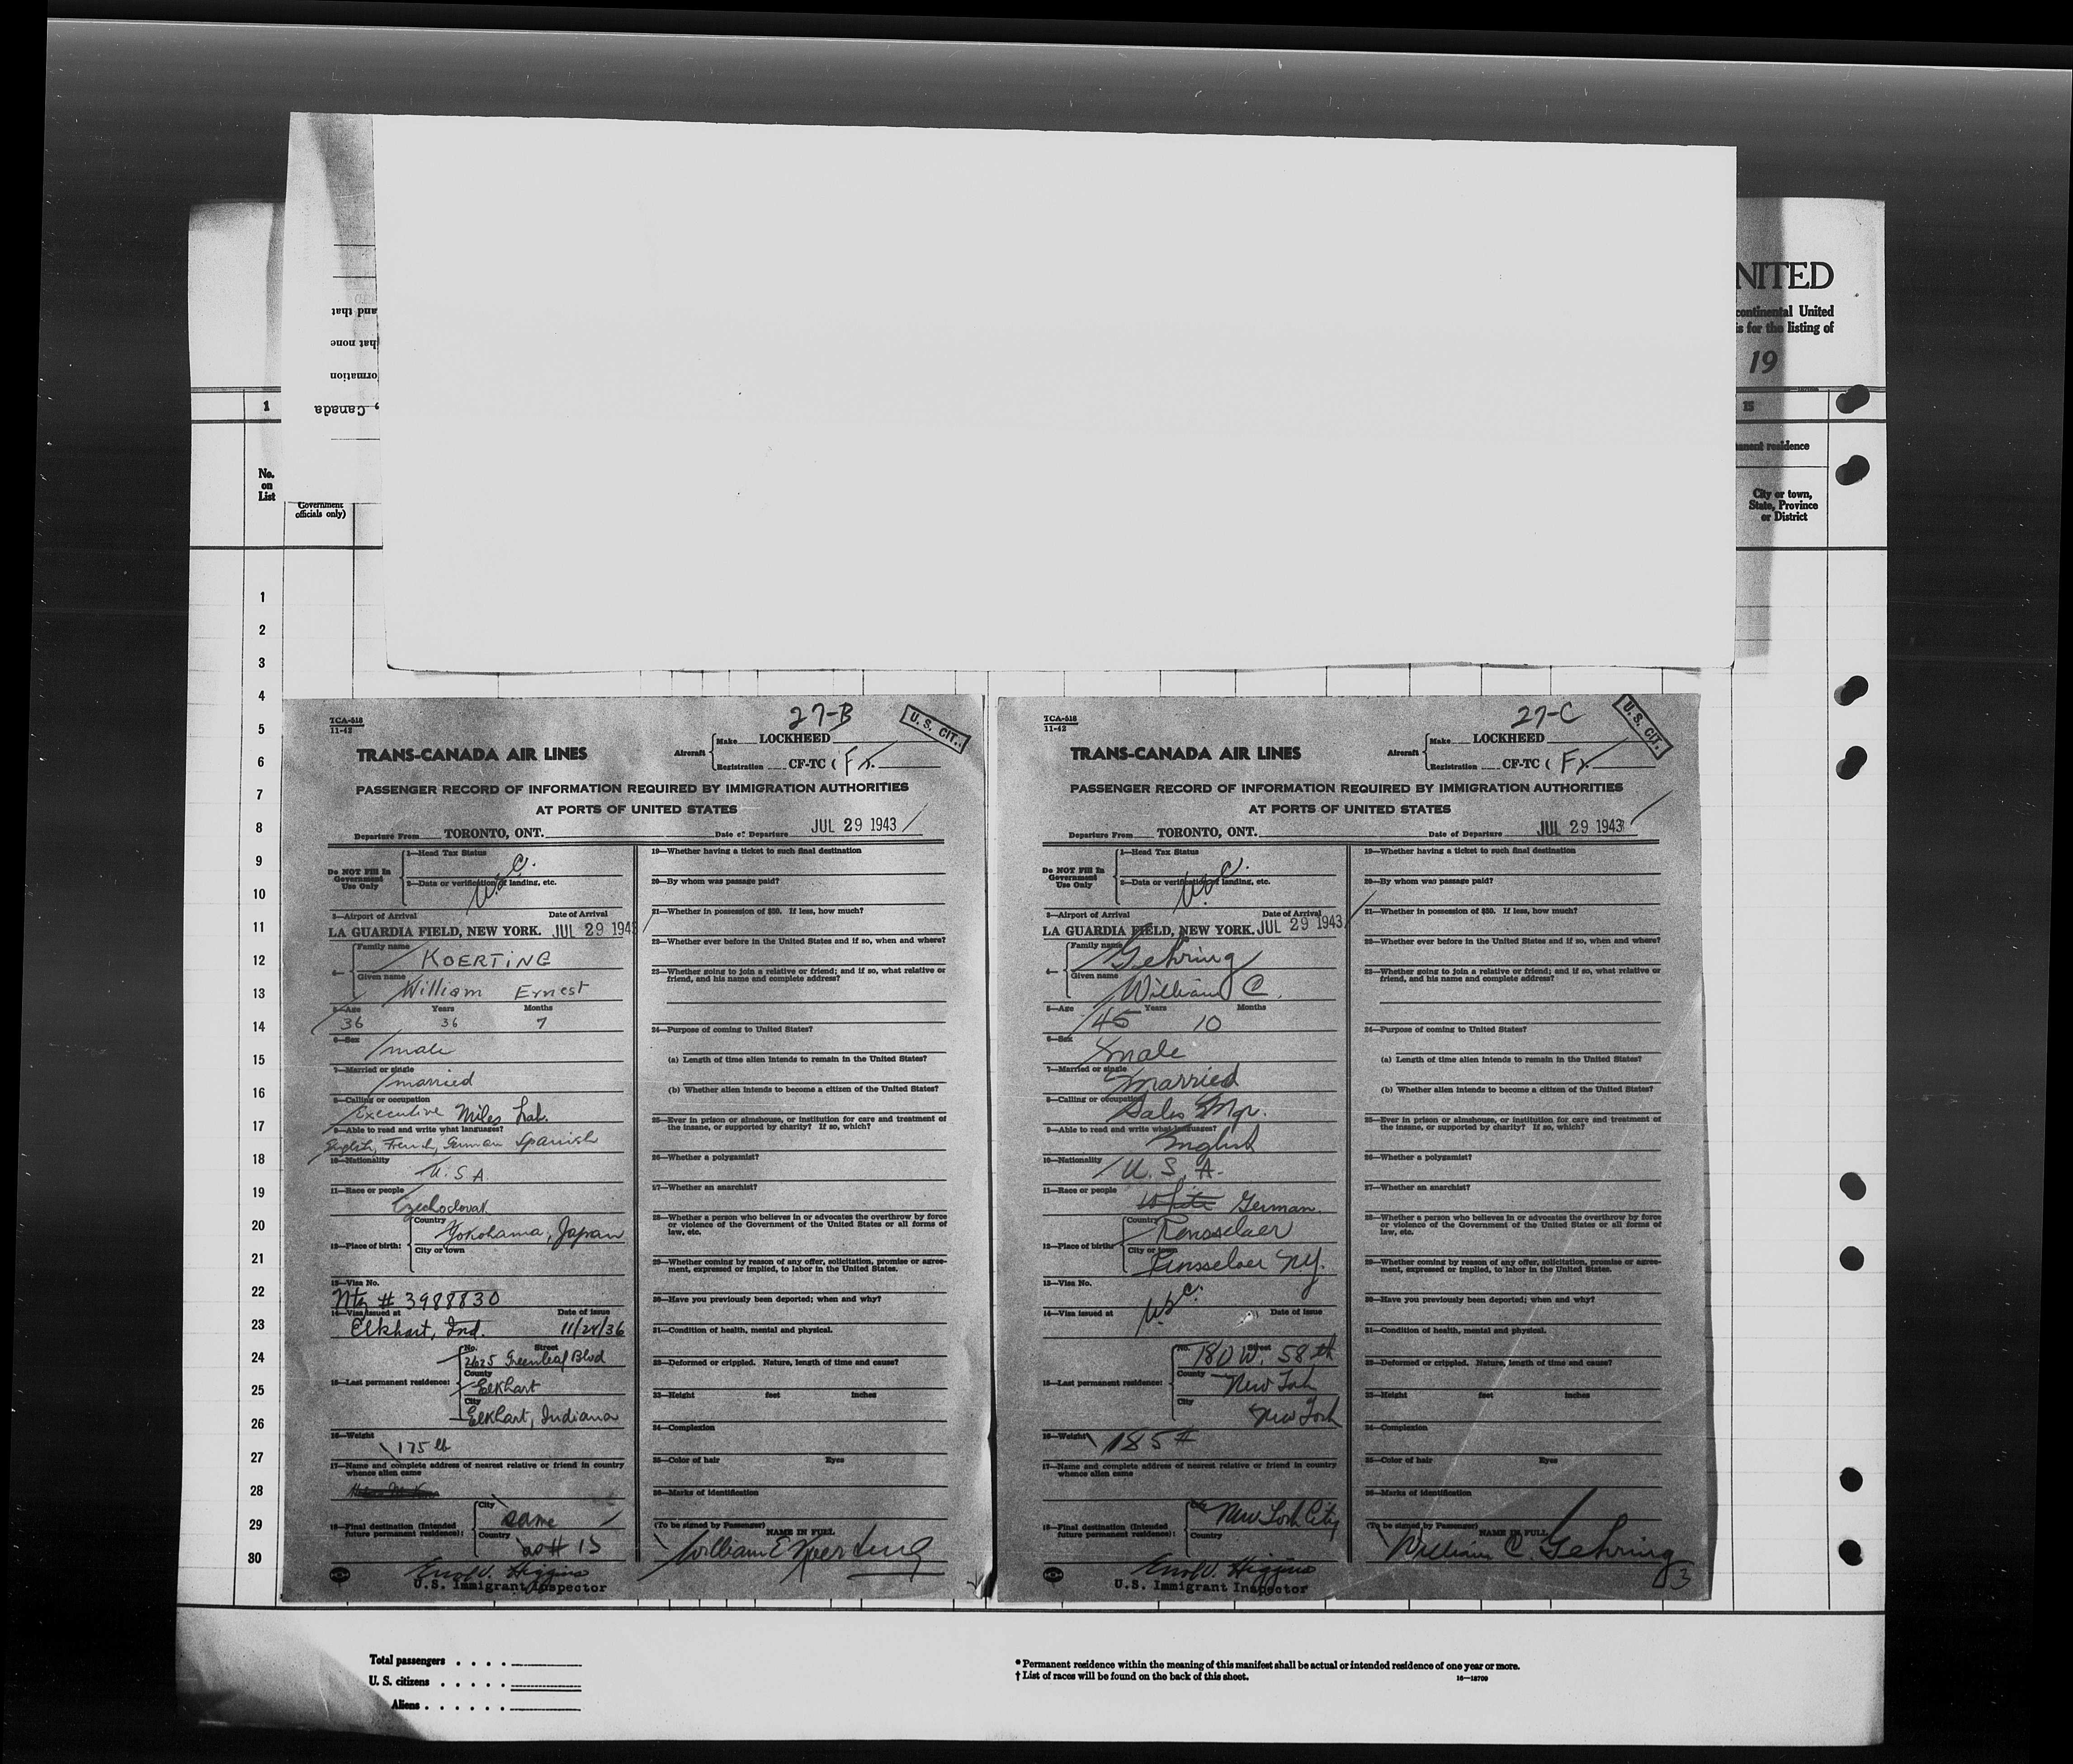 NITED
continental United
is for the listing of
19
and that
that none
ormation
, Canada
1
15
manent residence
No.
on
List
Government
officials only)
City or town,
State, Province
or District
1
2
3
4
5
6
7
8
9
10
11
12
13
14
15
16
17
18
19
20
21
22
23
24
25
26
27
28
29
30
27-B
U. S. CIT.
TCA-518
11-42
TRANS-CANADA AIR LINES
Aircraft
Make LOCKHEED
Registration CF-TC
PASSENGER RECORD OF INFORMATION REQUIRED BY IMMIGRATION AUTHORITIES
AT PORTS OF UNITED STATES
Departure From TORONTO, ONT. Date of Departure JUL 29 1943
Do NOT Fill In
Government
Use Only
1—Head Tax Status
2—Data or verification of landing, etc.
3—Airport of Arrival Date of Arrival
LA GUARDIA FIELD, NEW YORK. JUL 29 194
4— Family name
KOERTING
Given name
William Ernest
5—Age Years Months
36 36 7
6—Sex
male
7—Married or single
married
8—Calling or occupation
Executive Miles Lab.
9—Able to read and write what languages?
English, French, German Spanish
10—Nationality
U. S. A.
11—Race or people
Czechoslovak
12—Place of birth:
Country
Yokohama, Japan
City or town
13—Visa No.
Ntz # 3988830
14—Visa issued at Date of issue
Elkhart, Ind. 11/24/36
15—Last permanent residence:
No. Street
2625 Greenleaf Blvd
County
Elkhart
City
Elkhart, Indiana
16—Weight
175 lb
17—Name and complete address of nearest relative or friend in country
whence alien came
18—Final destination (Intended
future permanent residence):
City
same
Country
as # 15
U.S. Immigrant Inspector
19—Whether having a ticket to such final destination
20—By whom was passage paid?
21—Whether in possession of $50. If less, how much?
22—Whether ever before in the United States and if so, when and where?
23—Whether going to join a relative or friend; and if so, what relative or
friend, and his name and complete address?
24—Purpose of coming to United States?
(a) Length of time alien intends to remain in the United States?
(b) Whether alien intends to become a citizen of the United States?
25—Ever in prison or almshouse, or institution for care and treatment of
the insane, or supported by charity? If so, which?
26—Whether a polygamist?
27—Whether an anarchist?
28—Whether a person who believes in or advocates the overthrow by force
or violence of the Government of the United States or all forms of
law, etc.
29—Whether coming by reason of any offer, solicitation, promise or agree-
ment, expressed or implied, to labor in the United States.
30—Have you previously been deported; when and why?
31—Condition of health, mental and physical.
32—Deformed or crippled. Nature, length of time and cause?
33—Height feet inches
34—Complexion
35—Color of hair Eyes
36—Marks of identification
(To be signed by Passenger) NAME IN FULL
William E Koerting
27-C
U. S. CIT.
TCA-518
11-42
TRANS-CANADA AIR LINES
Aircraft
Make LOCKHEED
Registration CF-TC
PASSENGER RECORD OF INFORMATION REQUIRED BY IMMIGRATION AUTHORITIES
AT PORTS OF UNITED STATES
Departure From TORONTO, ONT. Date of Departure JUL 29 1943
Do NOT Fill In
Government
Use Only
1—Head Tax Status
2—Data or verification of landing, etc.
3—Airport of Arrival Date of Arrival
LA GUARDIA FIELD, NEW YORK. JUL 29 1943
4— Family name
Gehring
Given name
William C.
5—Age Years Months
45 10
6—Sex
male
7—Married or single
Married
8—Calling or occupation
Sales Mgr.
9—Able to read and write what languages?
English
10—Nationality
U. S. A.
11—Race or people
White German.
12—Place of birth:
Country
Rensselaer
City or town
Rensselaer NY.
13—Visa No.
14—Visa issued at Date of issue
15—Last permanent residence:
No. Street
180 W. 58th
County
New York
City
New York
16—Weight
185#
17—Name and complete address of nearest relative or friend in country
whence alien came
18—Final destination (Intended
future permanent residence):
City
New York City
Country
U.S. Immigrant Inspector
19—Whether having a ticket to such final destination
20—By whom was passage paid?
21—Whether in possession of $50. If less, how much?
22—Whether ever before in the United States and if so, when and where?
23—Whether going to join a relative or friend; and if so, what relative or
friend, and his name and complete address?
24—Purpose of coming to United States?
(a) Length of time alien intends to remain in the United States?
(b) Whether alien intends to become a citizen of the United States?
25—Ever in prison or almshouse, or institution for care and treatment of
the insane, or supported by charity? If so, which?
26—Whether a polygamist?
27—Whether an anarchist?
28—Whether a person who believes in or advocates the overthrow by force
or violence of the Government of the United States or all forms of
law, etc.
29—Whether coming by reason of any offer, solicitation, promise or agree-
ment, expressed or implied, to labor in the United States.
30—Have you previously been deported; when and why?
31—Condition of health, mental and physical.
32—Deformed or crippled. Nature, length of time and cause?
33—Height feet inches
34—Complexion
35—Color of hair Eyes
36—Marks of identification
(To be signed by Passenger) NAME IN FULL
William C. Gehring
3
Total passengers
U. S. citizens
Aliens
* Permanent residence within the meaning of this manifest shall be actual or intended residence of one year or more.
† List of races will be found on the back of this sheet.
16—18700